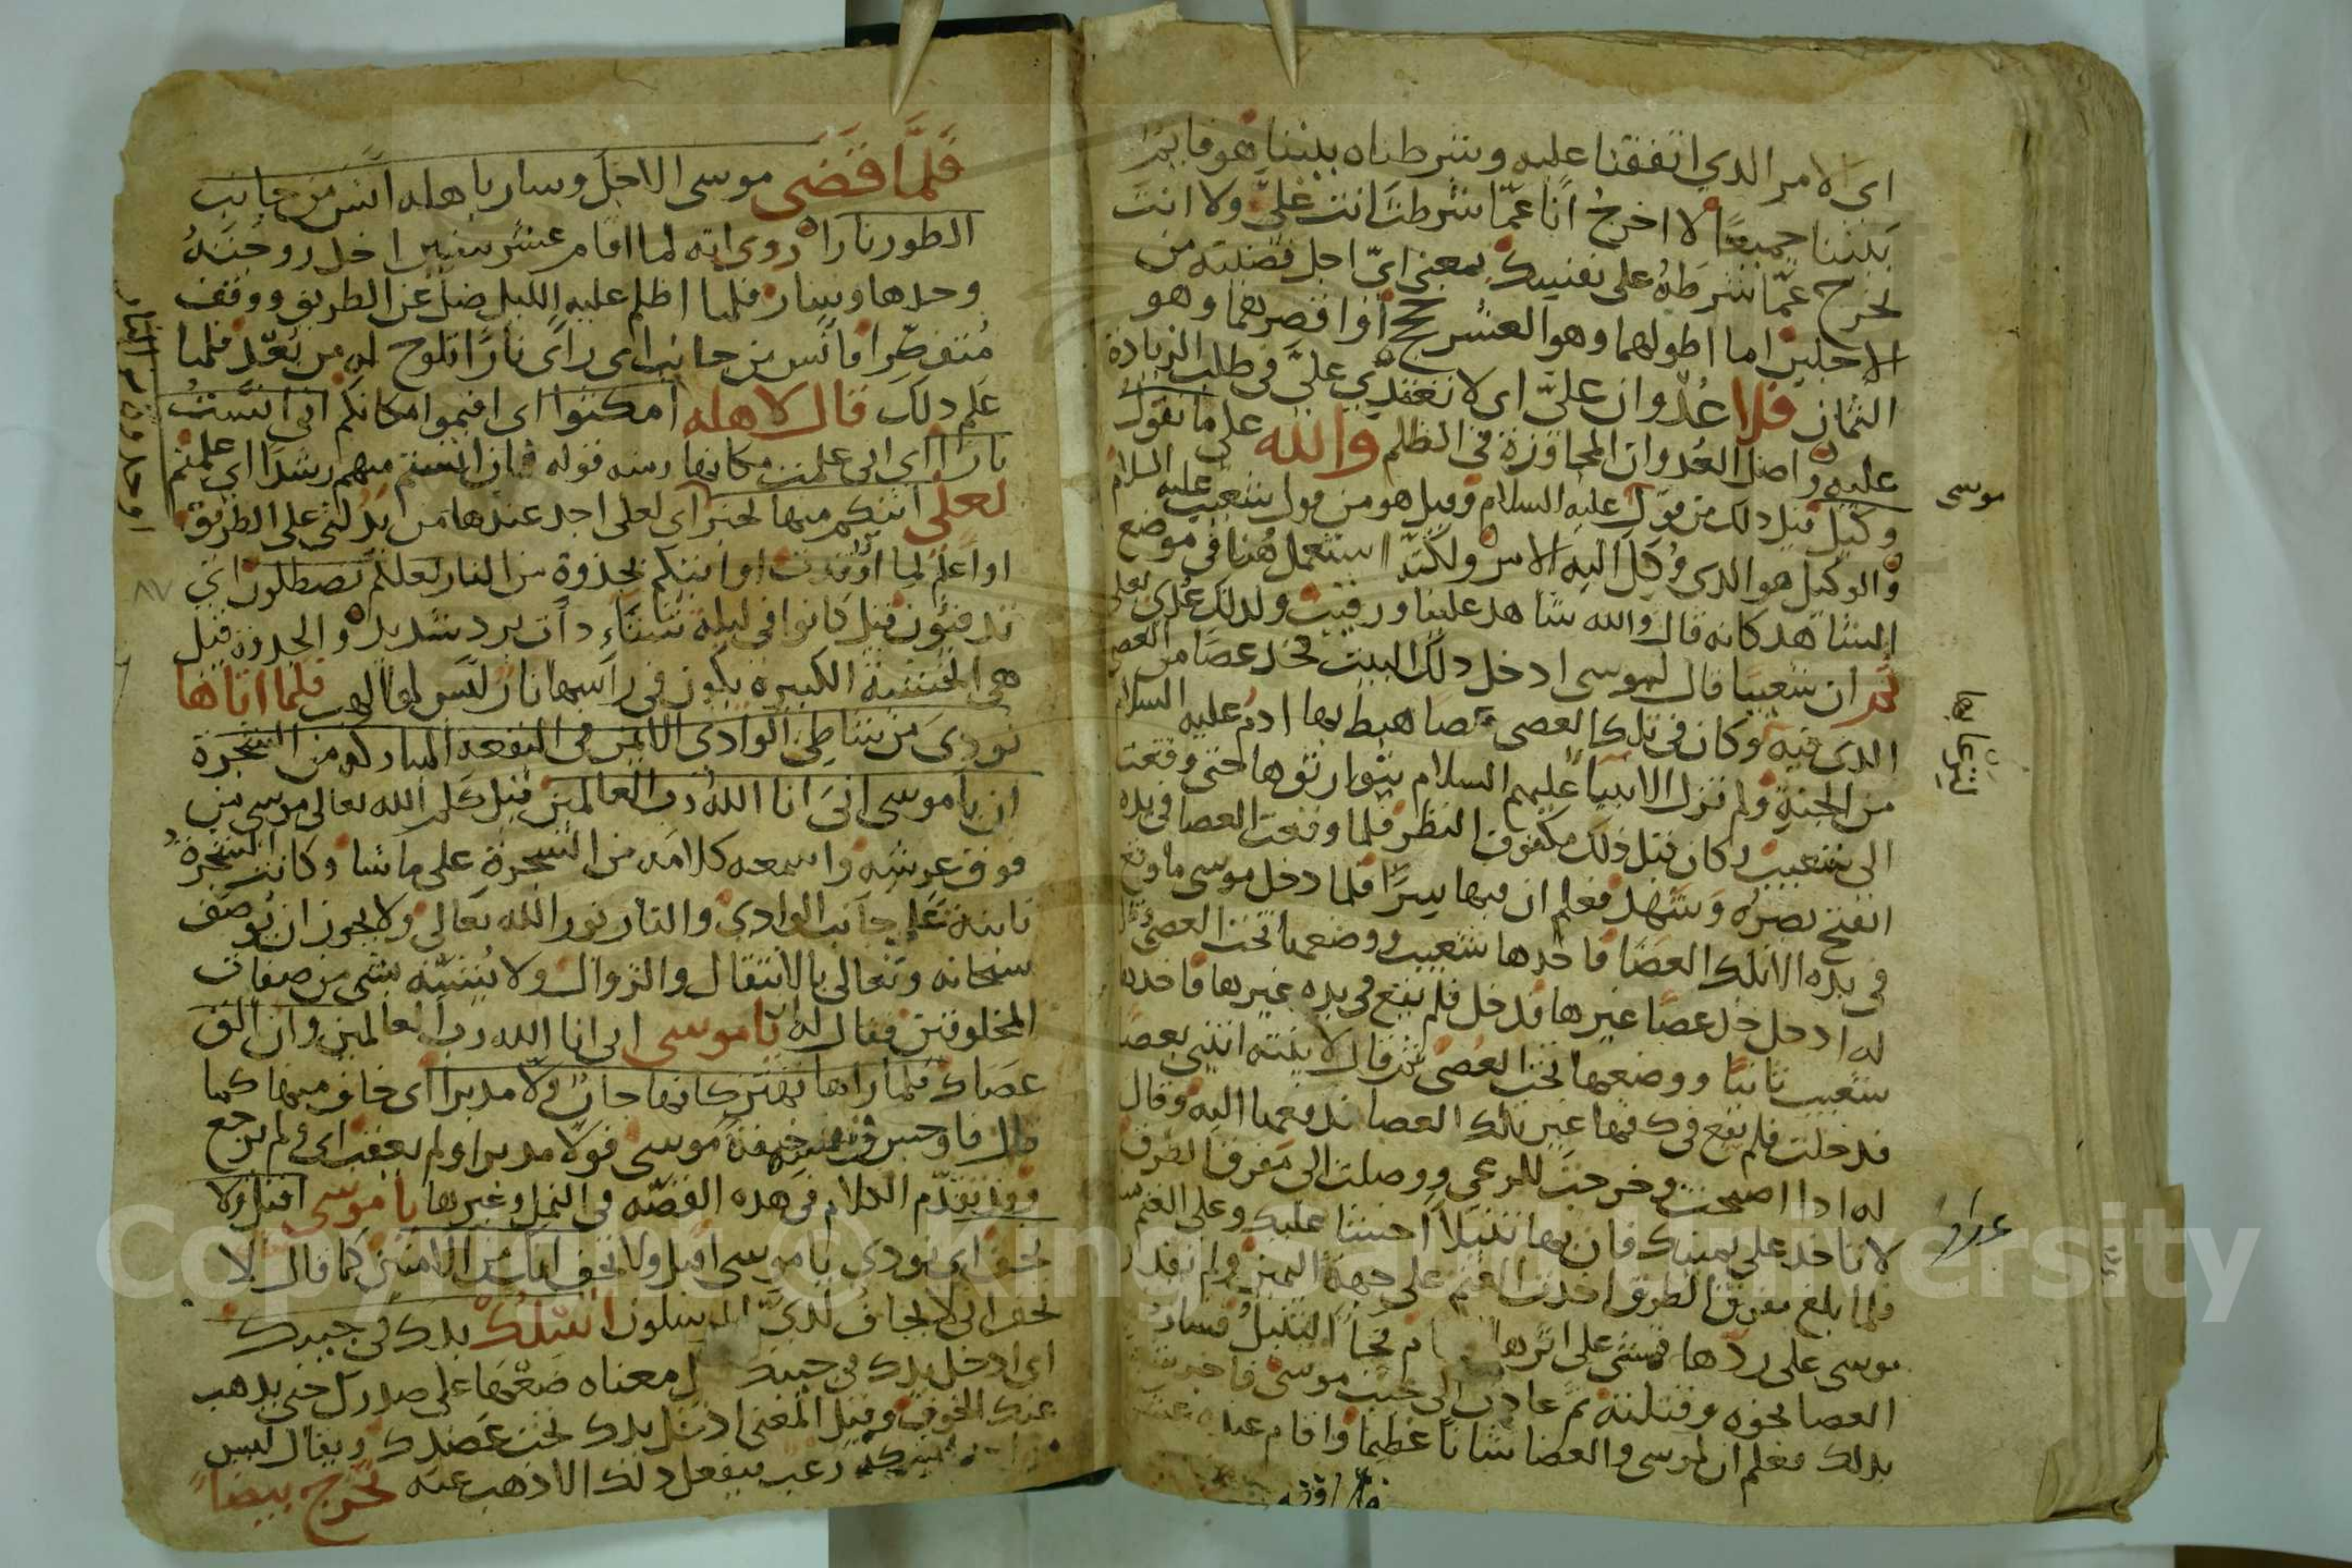 اى الامر الذي اتفقنا عليه وشرطناه بيننا هو قايم
بيننا جميعًا لا اخرجُ انا عمّا شرطتَ انت علىّ ولا انت
تخرج عمّا شرطهُ على نفسك بمعنى اىّ اجل قضيته من
الاجلين اما اطولهما وهو العشر حجج أو اقصرهما وهو
الثمان فلا عُدوان علىّ اى لا تعتدّي علىّ فى طلب الزيادة
عليه واصل العُدوان المجاوزة فى الظلم والله على ما نقول
وكيل قيل ذلك من قول عليه السلام وقيل هو من قول شعيب عليه السلام
موسى
والوكيل هو الذى وُكل اليه الامر ولكنّه استعمل هُنا فى موضع
الشاهد كانه قال والله شاهد علينا ورقيب ولذلك عُدى بعلى
ثم ان شعيبًا قال لموسى ادخل ذلك البيت فخذ عصًا من العصى
الذى فيه وكان فى تلك العصى عصا هبط بها ادم عليه السلام
من الجنة ولم تزل الانبيآ عليهم السلام يتوارثوها حتى وقعت
الى شعيب وكان قبل ذلك مكفوف النظر فلما وقعت العصا فى يده
انفتح بصره وشهد فعلم ان فيها سرًا فلما دخل موسى ما وقع
فى يده الا تلك العصا فاخذها شعيب ووضعها تحت العصى
له ادخل خذ عصًا غيرها فدخل فلم يقع فى يده غيرها فاخذها
شعيب ثانيًا ووضعها تحت العصى ثم قال لابنته ائتنى بعصا
فدخلت فلم يقع فى كفها غير تلك العصا فدفعها اليه وقال
له اذا اصبحت وخرجت للمرعى ووصلت الى مفرق الطرق
لا تاخذ على يمينك فان بها تنينًا اخشا عليك وعلى الغنم
فلما بلغ مفرق الطرق اخذت الغنم على جهة اليمين ولم يقدر
موسى على ردّها فمشى على اثرها نام فجآ التنين فسارت
العصا نحوه وقتلته ثم عادت الى جنب موسى فاخبر
بذلك فعلم ان لموسى والعصا شانًا عظيمًا واقام عنده
فلمّا قضى موسى الاجل وسار باهله آنس من جانب
الطور نارا روى انه لما اقام عشر سنين اخذ زوجته
وحدها وسار فلما اظلم عليه الليل ضل عن الطريق ووقف
فآنس من جانب اى راى نارًا تلوح له من بُعد فلما
علم ذلك قال لاهله امكثوا اى اقيموا مكانكم انى آنست
نارا اى انى علمت مكانها ومنه قوله فان انستم منهم رشدًا اى علمتم
لعلى اتيكم منها بخبر اى لعلى اجد عندها من يدلنى على الطريق
او اعلم لما أوقدت او اتيكم بجذوة من النار لعلكم تصطلون اى
تدفئون قيل كانوا فى ليلة شتآء ذات برد شديد والجذوة قيل
هى الخشبة الكبيرة يكون فى راسها نار ليس لها لهب فلما اتاها
نودى من شاطئ الوادى الايمن فى البقعة المباركة من الشجرة
ان يا موسى انى انا الله رب العالمين قيل كلم الله تعالى موسى من
فوق عرشه واسمعه كلامه من الشجرة على ما شا وكانت الشجرة
نابتة على جانب الوادى والنار نور الله تعالى ولا يجوز ان يُوصف
سبحانه وتعالى بالانتقال والزوال ولا يُشبّه بشى من صفات
المخلوقين فقال له يا موسى انى انا الله رب العالمين وان الق
عصاك فلما راها تهتز كانها جان ولا مدبرا اى خاف منها كما
قال فاوجس فى نفسه خيفة موسى فولا مدبرا ولم يعقب اى لم يرجع
وقد تقدّم الكلام فى هذه القصّه فى النمل وغيرها يا موسى اقبل ولا
تخف اى نودى يا موسى اقبل ولا تخف انك من الامنين كما قال لا
تخف انى لا يخاف لدىّ المرسلون اسْلُكْ يدك فى جيبك
اى ادخل يدك فى جيبك معناه ضعْها على صدرك حتى يذهب
عنك الخوف وقيل المعنى ادخل يدك تحت عضدك ويقال ليس
رعب فيفعل ذلك الا ذهب عنه تخرج بيضآ